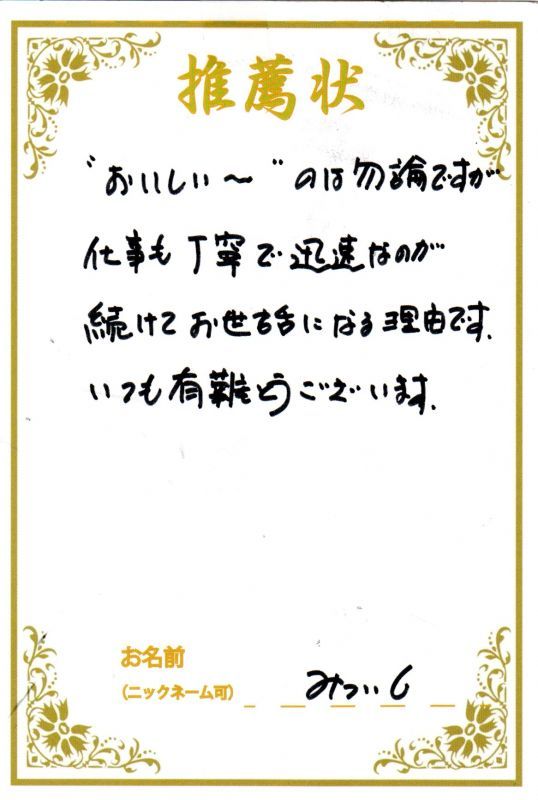 推薦状
"おいしい～"のは勿論ですが
仕事も丁寧で迅速なのが
続けてお世話になる理由です.
いつも有難とうございます.
お名前
(ニックネーム可)
みついし